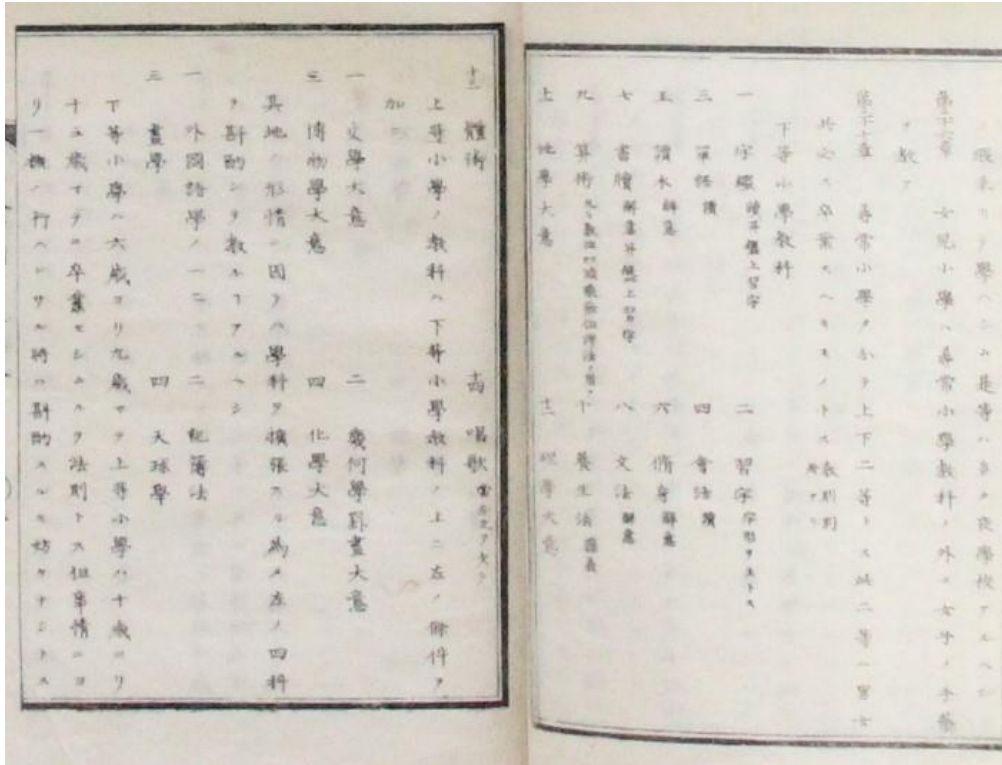 リテ學ハシム是等ハ多ク夜學校アルヘシ
第二十六章 女兒小學ハ尋常小學教科ノ外ニ女子ノ手藝
ヲ教フ
第二十七章 尋常小學ヲ分テ上下二等トス此二等ハ男女
共必ス卒業スヘキモノトス 教則別冊アリ
下等小學教科
一 字綴 讀并盤上習字 二 習字 字形ヲ主トス
三 單語 讀 四 會話 讀
五 讀本 解意 六 脩身 解意
七 書牘 解意并盤上習字 八 文法 解意
九 算術 九々數位加減乘除但洋法ヲ用フ 十 養生法 講義
十一 地學大意 十二 理學大意
十三 體術 十四 唱歌 當分之ヲ欠ク
上等小學ノ教科ハ下等小學教科ノ上ニ左ノ條件ヲ
加フ
一 史學大意 二 幾何學罫畫大意
三 博物學大意 四 化學大意
其地ノ形情ニ因テハ學科ヲ擴張スル為メ左ノ四科
ヲ斟酌シテ教ルヿアルヘシ
一 外國語學ノ一二 二 記簿法
三 畫學 四 天球學
下等小學ハ六歳ヨリ九歳マテ上等小學ハ十歳ヨリ
十三歳マテニ卒業セシムルヲ法則トス但事情ニヨ
リ一概ニ行ハレサル時ハ斟酌スルモ妨ケナシトス